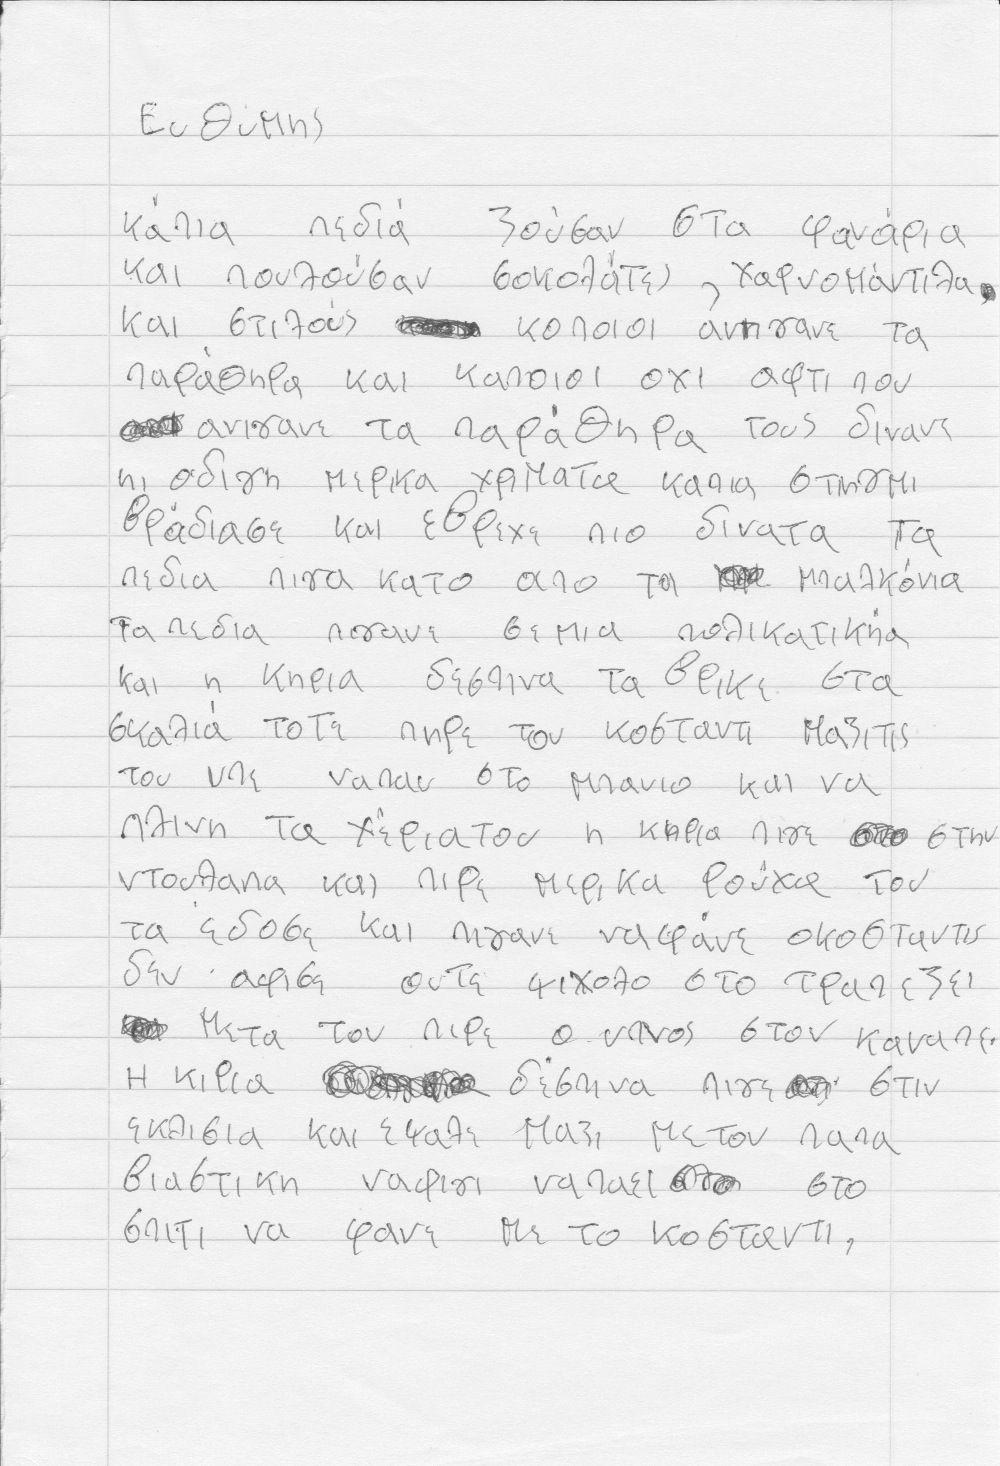 Ευθύμης
κάπια πεδιά ζούσαν στα φανάρια
και πουλούσαν σοκολάτες, χαρνομάντιλα,
και στιλούς κοποιοι άνηγανε τα
παράθηρα και καποιοι οχι αφτι που
ανιγανε τα παράθηρα τους δινανε
μερικα χριματα καπια στηγμι
βράδιασε και έβρεχε πιο δινατα τα
πεδια πιγα κατο απο τα μπαλκόνια
τα πεδια πιγανε σε μια πολικατικήα
και η κηρια δεσπινα τα βρικε στα
σκαλιά τοτε πηρε τον κοσταντι μαζιτις
του υπε ναπαυ στο μπανιο και να
πλινη τα χέριατου η κηρια πιγε στην
ντουλαπα και πιρε μερικα ρούχα του
τα έδοσε και πηγανε ναφάνε οκοσταντις
δεν αφισε ουτε ψιχολο στο τραπεζει
Μετα τον πιρε ο υπνος στον καναπε.
Η κιρια δέσπηνα πιγε στιν
εκλισια και εψαλε μαζι μετον παπα
βιαστικη ναφιγι ναπαει στο
σπιτι να φανε με το κοσταντι,